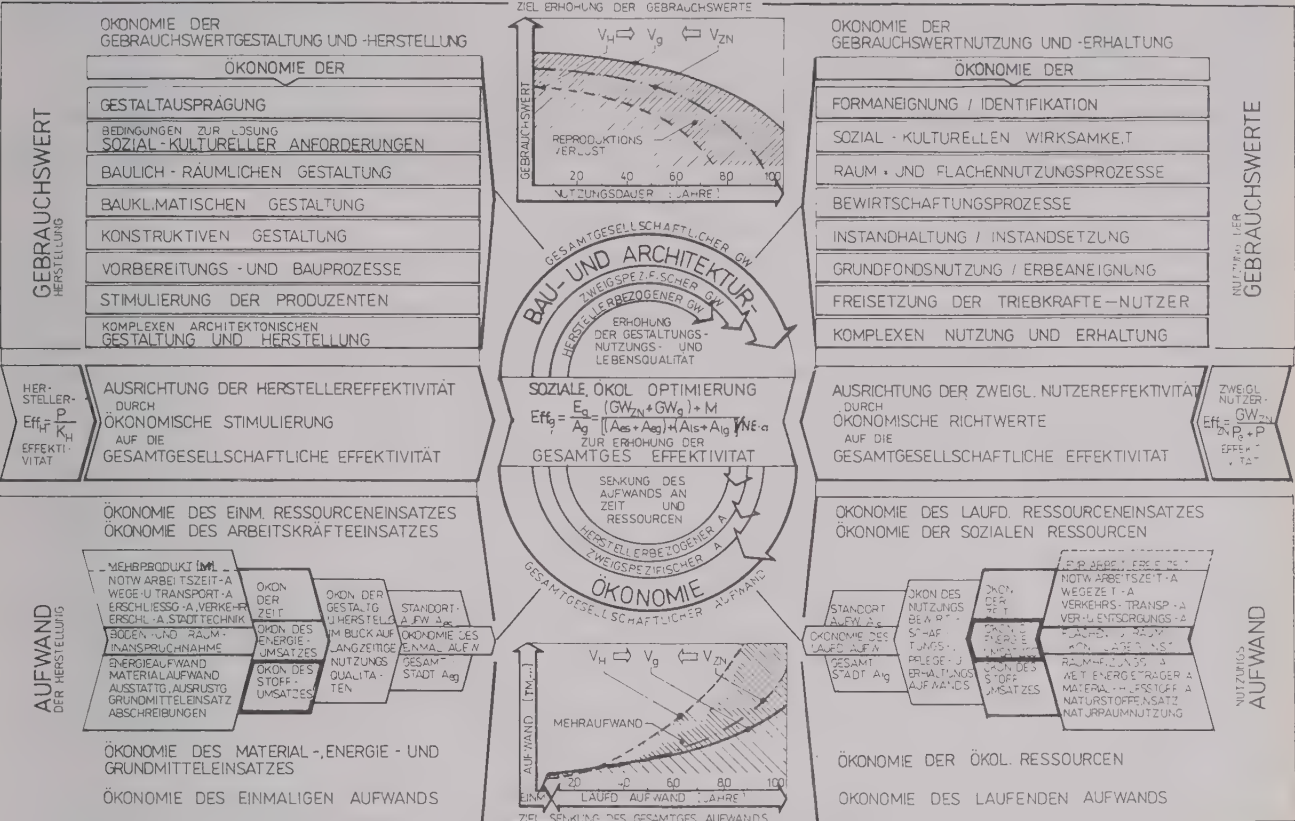 ZIEL ERHÖHUNG DER GEBRAUCHSWERTE
ÖKONOMIE DER
GEBRAUCHSWERTGESTALTUNG UND -HERSTELLUNG
ÖKONOMIE DER
GEBRAUCHSWERT
HERSTELLUNG
GESTALTAUSPRÄGUNG
BEDINGUNGEN ZUR LÖSUNG
SOZIAL-KULTURELLER ANFORDERUNGEN
BAULICH-RÄUMLICHEN GESTALTUNG
BAUKLIMATISCHEN GESTALTUNG
KONSTRUKTIVEN GESTALTUNG
VORBEREITUNGS- UND BAUPROZESSE
STIMULIERUNG DER PRODUZENTEN
KOMPLEXEN ARCHITEKTONISCHEN
GESTALTUNG UND HERSTELLUNG
V_H ⇨ V_g ⇦ V_ZN
GEBRAUCHSWERT
REPRODUKTIONS
VERLUST
20 40 60 80 100
NUTZUNGSDAUER [JAHRE]
ÖKONOMIE DER
GEBRAUCHSWERTNUTZUNG UND -ERHALTUNG
ÖKONOMIE DER
FORMANEIGNUNG / IDENTIFIKATION
SOZIAL-KULTURELLEN WIRKSAMKEIT
RAUM- UND FLÄCHENNUTZUNGSPROZESSE
BEWIRTSCHAFTUNGSPROZESSE
INSTANDHALTUNG / INSTANDSETZUNG
GRUNDFONDSNUTZUNG / ERBEANEIGNUNG
FREISETZUNG DER TRIEBKRÄFTE–NUTZER
KOMPLEXEN NUTZUNG UND ERHALTUNG
NUTZUNG DER
GEBRAUCHSWERTE
GESAMTGESELLSCHAFTLICHER GW
BAU- UND ARCHITEKTUR-
ZWEIGSPEZIFISCHER GW
HERSTELLERBEZOGENER GW
ERHÖHUNG
DER GESTALTUNGS-
NUTZUNGS- UND
LEBENSQUALITÄT
HER-
STELLER-
Eff_H = P / K_H
EFFEKTI-
VITÄT
AUSRICHTUNG DER HERSTELLEREFFEKTIVITÄT
DURCH
ÖKONOMISCHE STIMULIERUNG
AUF DIE
GESAMTGESELLSCHAFTLICHE EFFEKTIVITÄT
SOZIALE, ÖKOL OPTIMIERUNG
Eff_g = E_g / A_g = (GW_ZN + GW_g) + M / [(A_es + A_eg) + (A_ls + A_lg)] / NE·a
ZUR ERHÖHUNG DER
GESAMTGES EFFEKTIVITÄT
AUSRICHTUNG DER ZWEIGL. NUTZEREFFEKTIVITÄT
DURCH
ÖKONOMISCHE RICHTWERTE
AUF DIE
GESAMTGESELLSCHAFTLICHE EFFEKTIVITÄT
ZWEIGL
NUTZER-
SENKUNG DES
AUFWANDS AN
ZEIT UND
RESSOURCEN
HERSTELLERBEZOGENER A
ZWEIGSPEZIFISCHER A
ÖKONOMIE
GESAMTGESELLSCHAFTLICHER AUFWAND
ÖKONOMIE DES EINM. RESSOURCENEINSATZES
ÖKONOMIE DES ARBEITSKRÄFTEEINSATZES
AUFWAND
DER HERSTELLUNG
MEHRPRODUKT [M]
NOTW ARBEITSZEIT-A
WEGE-U TRANSPORT-A
ERSCHLIESSG-A, VERKEHR
ERSCHL-A, STADTTECHNIK
BODEN- UND RAUM-
INANSPRUCHNAHME
ENERGIEAUFWAND
MATERIALAUFWAND
AUSSTATTG, AUSRÜSTG
GRUNDMITTELEINSATZ
ABSCHREIBUNGEN
ÖKON
DER
ZEIT
ÖKON DES
ENERGIE-
UMSATZES
ÖKON DES
STOFF-
UMSATZES
ÖKON DER
GESTALTG
U HERSTELLG
IM BLICK AUF
LANGZEITIGE
NUTZUNGS
QUALITÄ-
TEN
STANDORT-
AUFW A_es
ÖKONOMIE DES
EINMAL AUFW
GESAMT
STADT A_eg
ÖKONOMIE DES MATERIAL-, ENERGIE- UND
GRUNDMITTELEINSATZES
ÖKONOMIE DES EINMALIGEN AUFWANDS
V_H ⇨ V_g ⇦ V_ZN
MEHRAUFWAND
20 40 60 80 100
EINM LAUFD AUFWAND [JAHRE]
ZIEL SENKUNG DES GESAMTGES AUFWANDS
ÖKONOMIE DES LAUFD. RESSOURCENEINSATZES
ÖKONOMIE DER SOZIALEN RESSOURCEN
STANDORT
AUFW A_ls
ÖKONOMIE DES
LAUFD AUFW
GESAMT
STADT A_lg
ÖKON DES
NUTZUNGS
BEWIRT-
SCHAF
TUNGS-
PFLEGE- U
ERHALTUNGS
AUFWANDS
ÖKON
DER
ZEIT
ÖKON DES
STOFF
UMSATZES
NOTW ARBEITSZEIT-A
WEGEZEIT-A
VERKEHRS-TRANSP-A
VER-U ENTSORGUNGS-A
NATURSTOFFEINSATZ
NATURRAUMNUTZUNG
NUTZUNGS
AUFWAND
ÖKONOMIE DER ÖKOL. RESSOURCEN
ÖKONOMIE DES LAUFENDEN AUFWANDS